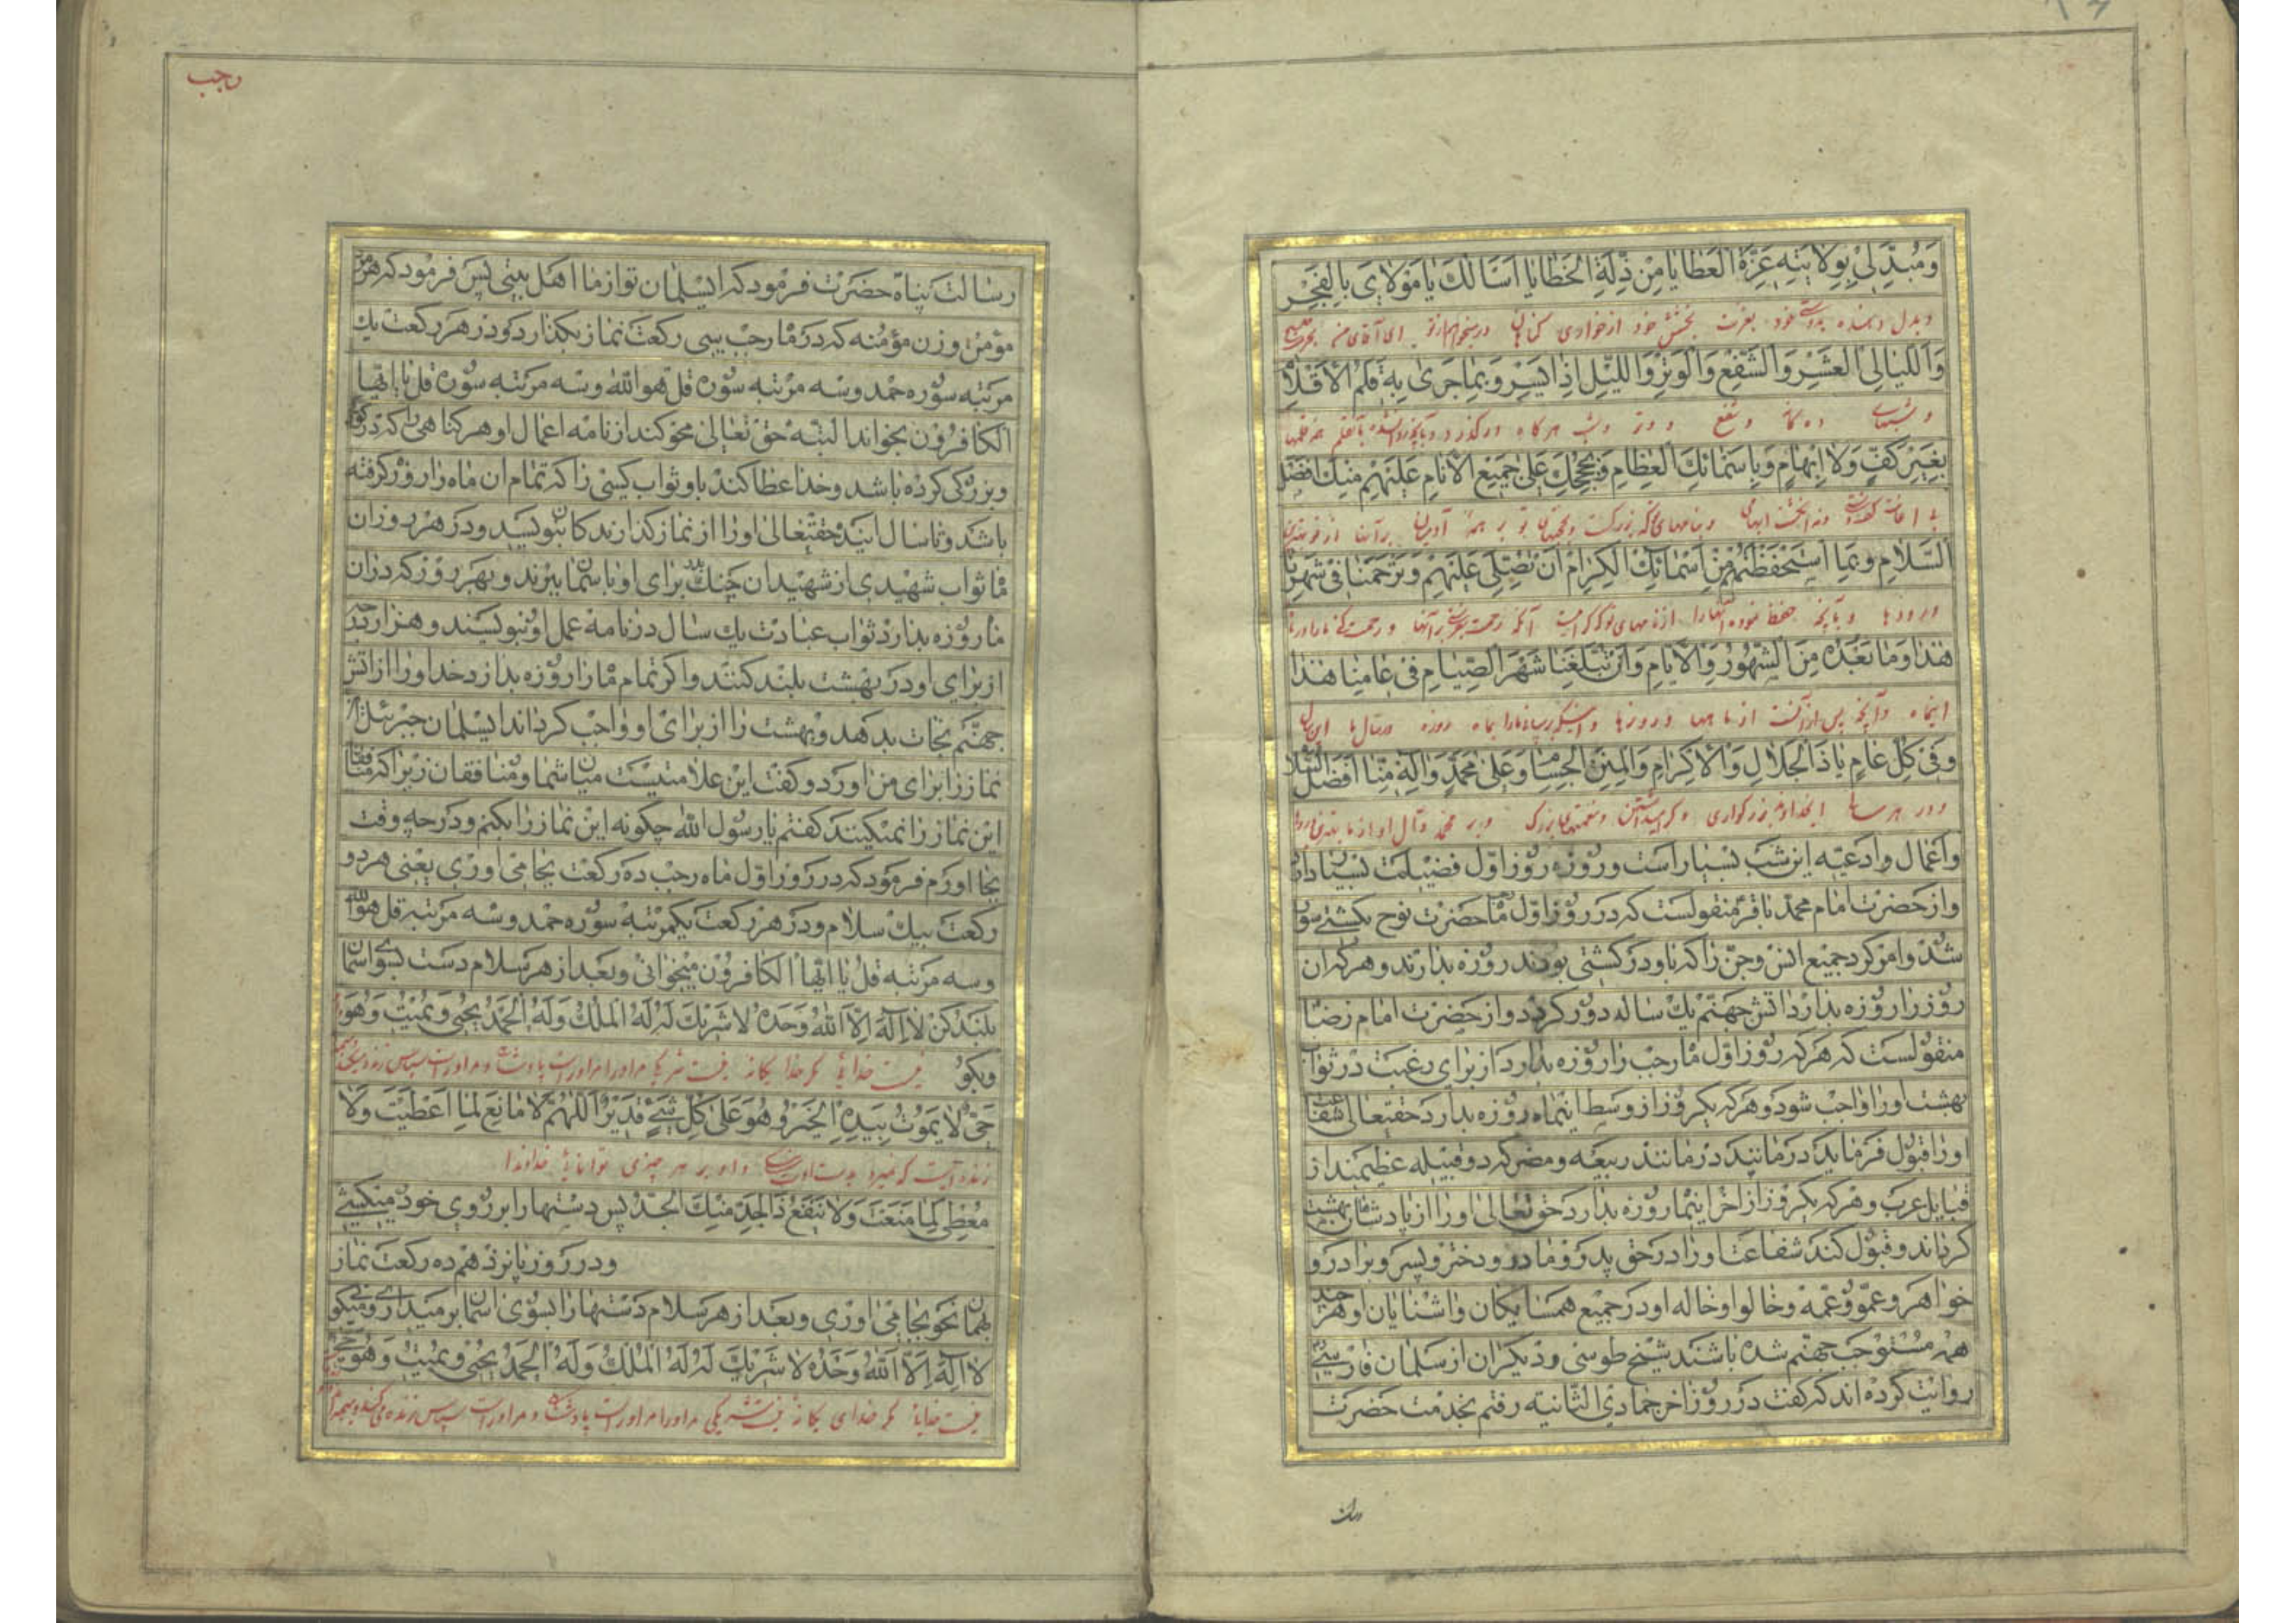 وَمُبَدِّلِي بِوِلَايَتِهِ عِزَّةَ الْعَطَايَا مِنْ ذِلَّةِ الْخَطَايَا أَسْأَلُكَ يَا مَوْلَايَ بِالْفَجْرِ
وبدل دهنده بدوستی خود بعزت بخشش خود از خواری گناهان درمیخواهم از تو ای آقای من بحق صبح
وَاللَّيَالِي الْعَشْرِ وَالشَّفْعِ وَالْوَتْرِ وَاللَّيْلِ إِذَا يَسْرِ وَبِمَا جَرَى بِهِ قَلَمُ الْأَقْلَامِ
وشبهای ده گانه وشفع ووتر وشب هر گاه درگذرد وبآنچه
بِغَيْرِ كَفٍّ وَلَا إِبْهَامٍ وَبِأَسْمَائِكَ الْعِظَامِ وَبِحُجَجِكَ عَلَى جَمِيعِ الْأَنَامِ عَلَيْهِمْ مِنْكَ أَفْضَلُ
ونه انگشت ابهامی وبنامهای تو که بزرگست وحجتهای تو بر همه آدمیان برآنها از تو بهترین
السَّلَامِ وَبِمَا اسْتَحْفَظْتَهُمْ مِنْ أَسْمَائِكَ الْكِرَامِ أَنْ تُصَلِّيَ عَلَيْهِمْ وَتَرْحَمَنَا فِي شَهْرِنَا
درودها وبآنچه حفظ نموده آنها را از نامهای تو که گرامیست آنکه رحمت بفرستی برآنها ورحمت کنی ما را در ماه
هٰذَا وَمَا بَعْدَهُ مِنَ الشُّهُورِ وَالْأَيَّامِ وَأَنْ تُبَلِّغَنَا شَهْرَ الصِّيَامِ فِي عَامِنَا هٰذَا
اینماه وآنچه پس از آنست از ماهها وروزها واینکه برسانی ما را بماه روزه در سال ما این سال
وَفِي كُلِّ عَامٍ يَا ذَا الْجَلَالِ وَالْإِكْرَامِ وَالْمِنَنِ الْجِسَامِ وَعَلَى مُحَمَّدٍ وَآلِهِ مِنَّا أَفْضَلُ السَّلَامِ
ودر هر سالی ایخداوند بزرگواری وگرامیداشتن ونعمتهای بزرگ وبر محمد وآل او از ما بهترین درود
واعمال وادعیه این شب بسیار است وروزه روز اول فضیلت بسیار دارد
واز حضرت امام محمد باقر منقولست که در روز اول ماه حضرت نوح بکشتی سوار
شد وامر کرد جمیع انس وجن را که با او در کشتی بودند روزه بدارند وهر که این
روز را روزه بدارد آتش جهنم یک ساله دور گردد واز حضرت امام رضا
منقولست که هر که روز اول ماه رجب را روزه بدارد از برای رغبت در ثواب
بهشت او را واجب شود وهر که یکروز از وسط اینماه روزه بدارد حقتعالی شفاعت
او را قبول فرماید در مانند در مانند ربیعه ومضر که دو قبیله عظیمند از
قبایل عرب وهر که یکروز از آخر اینماه روزه بدارد حق تعالی او را از پادشاهان بهشت
گرداند وقبول کند شفاعت او را در حق پدر ومادر ودختر وپسر وبرادر و
خواهر وعمو وعمه وخالو وخاله او در جمیع همسایگان وآشنایان او هر چند
همه مستوجب جهنم شده باشند شیخ طوسی ودیگران از سلمان فارسی
روایت کرده اند که گفت در روز آخر جمادی الثانیه رفتم بخدمت حضرت
رسالت
رجب
رسالت پناه حضرت فرمود که ای سلمان تو از ما اهل بیتی پس فرمود که هر مرد
مؤمن وزن مؤمنه که در ماه رجب سی رکعت نماز بگذارد ودر هر رکعت یک
مرتبه سوره حمد وسه مرتبه سوره قل هو الله وسه مرتبه سوره قل یا ایها
الکافرون بخواند البته حق تعالی محو کند از نامه اعمال او هر گناهی را که در کوچکی
وبزرگی کرده باشد وخدا عطا کند باو ثواب کسی را که تمام آن ماه را روزه گرفته
باشد وتا سال آینده حقتعالی او را از نماز گذارندکان بنویسد ودر هر روز آن
ماه ثواب شهیدی از شهیدان جنگ بدر برای او بآسمان ببرند وبهر روز که در آن
ماه روزه بدارد ثواب عبادت یک سال در نامه عمل او بنویسند وهزار درجه
از برای او در بهشت بلند کنند واگر تمام ماه را روزه بدارد خدا او را از آتش
جهنم نجات بدهد وبهشت را از برای او واجب گرداند ای سلمان جبرئیل
نماز را برای من آورد وگفت این علامتیست میان شما ومنافقان زیرا که منافقان
این نماز را نمیکنند گفتم یا رسول الله چگونه این نماز را بکنم ودر چه وقت
بجا آورم فرمود که در روز اول ماه رجب ده رکعت بجا می آوری یعنی هر دو
رکعت بیک سلام ودر هر رکعت یکمرتبه سوره حمد وسه مرتبه قل هو الله
وسه مرتبه قل یا ایها الکافرون میخوانی وبعد از هر سلام دست بسوی آسمان
بلند کن لَا إِلٰهَ إِلَّا اللّٰهُ وَحْدَهُ لَا شَرِيكَ لَهُ لَهُ الْمُلْكُ وَلَهُ الْحَمْدُ يُحْيِي وَيُمِيتُ وَهُوَ
وبگو نیست خدائی مگر خدا یگانه نیست شریکی مر او را مر او راست پادشاهی ومر او راست سپاس زنده میکند
حَيٌّ لَا يَمُوتُ بِيَدِهِ الْخَيْرُ وَهُوَ عَلَى كُلِّ شَيْءٍ قَدِيرٌ اللّٰهُمَّ لَا مَانِعَ لِمَا أَعْطَيْتَ وَلَا
زنده ایست که نمیرد بدست اوست واو بر هر چیزی توانائی خداوندا
مُعْطِيَ لِمَا مَنَعْتَ وَلَا يَنْفَعُ ذَا الْجَدِّ مِنْكَ الْجَدُّ پس دستها را بر روی خود میکشی
ودر روز پانزدهم ده رکعت نماز
بهمان نحو بجا می آوری وبعد از هر سلام دستها را بسوی آسمان بر میداری ومیگوئی
لَا إِلٰهَ إِلَّا اللّٰهُ وَحْدَهُ لَا شَرِيكَ لَهُ لَهُ الْمُلْكُ وَلَهُ الْحَمْدُ يُحْيِي وَيُمِيتُ وَهُوَ حَيٌّ
نیست خدائی مگر خدای یگانه نیست شریکی مر او را مر او راست پادشاهی ومر او راست سپاس زنده می کند